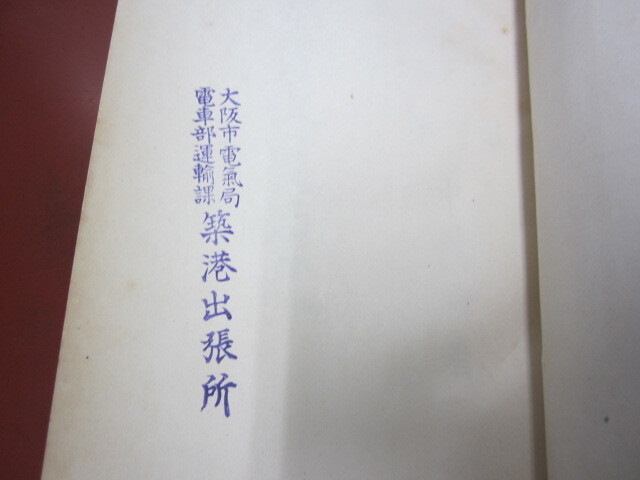 大阪市電氣局
電車部運輸課
築港出張所